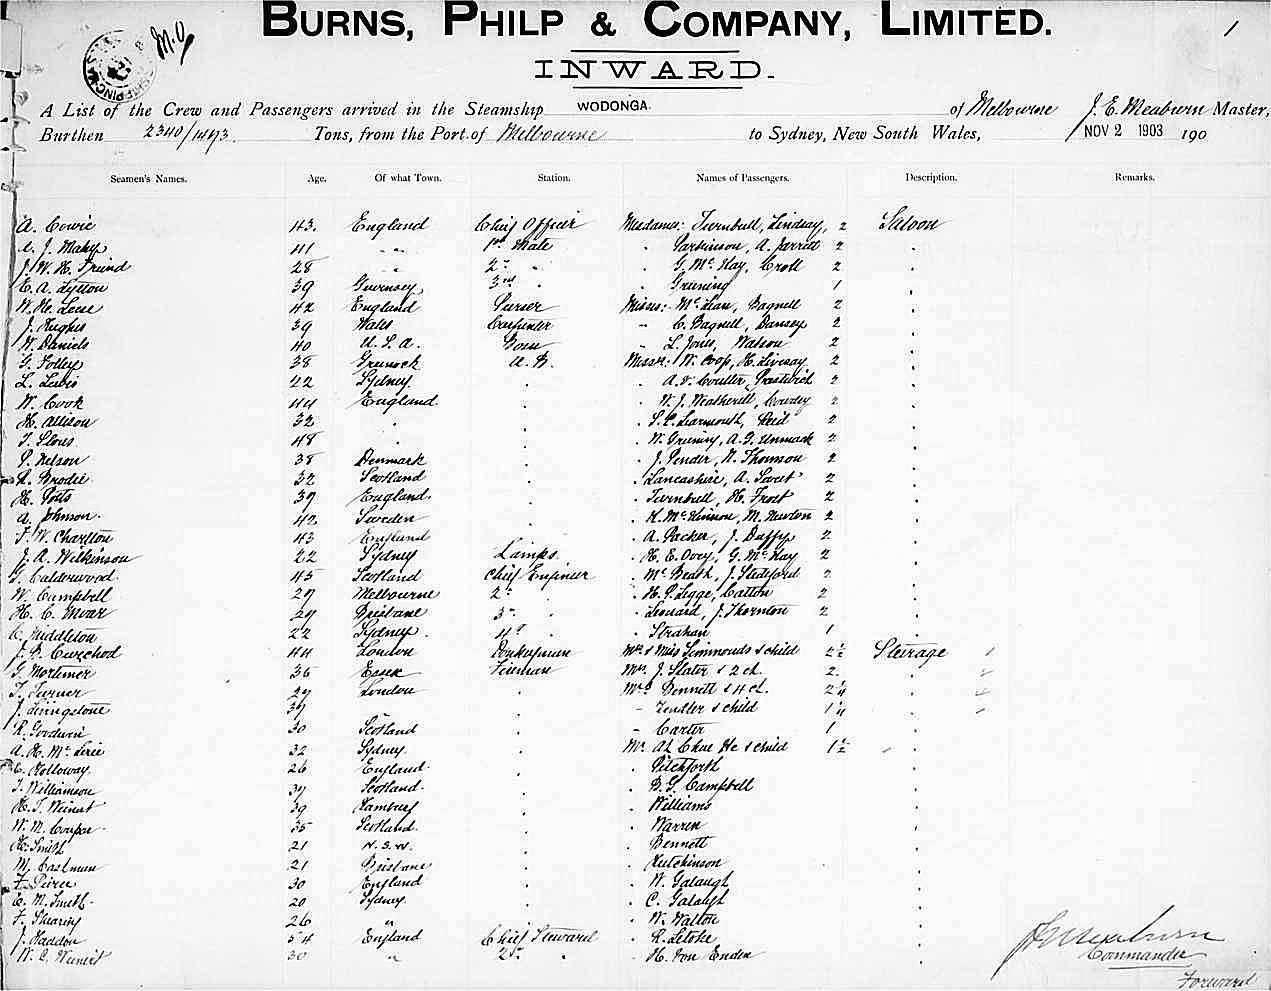 1
BURNS, PHILP & COMPANY, LIMITED.
M.O.
INWARD.
A List of the Crew and Passengers arrived in the Steamship WODONGA. of Melbourne J. E. Meaburn Master,
Burthen 2340/1473. Tons, from the Port of Melbourne to Sydney, New South Wales, NOV 2 1903 190
Seamen's Names. Age. Of what Town. Station. Names of Passengers. Description. Remarks.
A. Cowie 43. England Chief Officer Mesdames: Turnbull, Lindsay, 2 Saloon
J. Mahy 41 " " 1st Mate " Parkinson, A. Jarrett 2 "
J. W. H. Friend 28 " 2nd " " G. McKay, Croll 2 "
C. A. Lytton 39 Guernsey 3rd " " Gruning 1 "
W. H. 42 England Purser Misses: McLean, Bagnell 2
J. Hughes 39 Wales Carpenter " C. Bagnell, Dansey 2
W. Daniels 40 U. S. A. Bosn " L. Jones, Watson 2
G. Folley 38 Greenock A. B. Messrs: W. Coop, H. Livesay 2
L. Lewis 22 Sydney " " A. V. Coulter, Prestwich 2
W. Cook 44 England " " W. J. Weatherill, 2
H. Allison 32 " " " S. C. Learmouth, Reid 2
T. 48 " " " W. Gruning, A. G. Unmack 2
P. Nelson 38 Denmark " " J. Pender, N. Thomson 2
R. Brodie 32 Scotland " " Lancashire, A. 2
H. Potts 37 England " " Turnbull, H. Frost 2
A. Johnson. 42 Sweden " " K. McKinnon, M. Newton 2
F. W. Charlton 43 England " " A. Packer, J. Duffy 2
J. A. Wilkinson 22 Sydney Lamps. " H. E. Ovey, G. McKay 2
T. Calderwood 45 Scotland Chief Engineer " McBeath, J. 2
W. Campbell 27 Melbourne 2nd " " H. P. Legge, Catton 2
H. C. Moar 27 Brisbane 3rd " " Leonard, J. Thornton 2
C. Middleton 22 Sydney. 4th " " Strahan 1
J. B. 44 London Donkeyman Mrs & Miss Simmonds & child 2½ Steerage 1
G. Mortimer 36 Essex Fireman Mrs. J. Slater & 2 ch. 2.
T. Turner 27 London " Mrs. Bennett & 4 ch.
J. Livingstone 37 " " " & child
R. Goodwin 30 Scotland " " Carter 1
A. H. 32 Sydney. " Mr. Ah Chue He & child 1½
C. Holloway. 26 England " " Pitchforth
T. Williamson 37 Scotland. " " B. G. Campbell
H. T. Weinert 39 Hamburg " " Williams
W. M. Couper 35 Scotland. " " Warren
H. Smith 21 N. S. W. " " Bennett
M. Eastman 21 Brisbane " " Hutchinson
F. Pierce 30 England " " W. Galaugh
E. M. Smith. 20 Sydney. " " C. Galaugh
F. Shearing 26 " " " W. Walton
J. Haddon 54 England Chief Steward " R. Letoke
W. C. Weinert 30 " 2nd " " H. von Enden
J. E. Meaburn
Commander
Forward